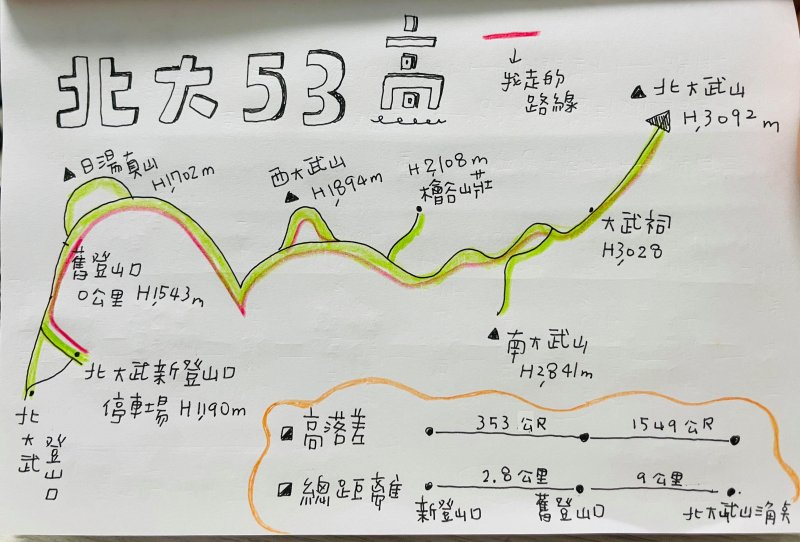 北大53高
我走的
路線
北大武山
H3092m
日湯真山
H1702m
西大武山
H1894m
H2108m
檜谷山莊
大武祠
H3028
舊登山口
0公里 H1543m
南大武山
H2841m
北大武新登山口
停車場 H1190m
北大武
登山口
高落差
353公尺
1549公尺
總距離
2.8公里
9公里
新登山口
舊登山口
北大武山三角點